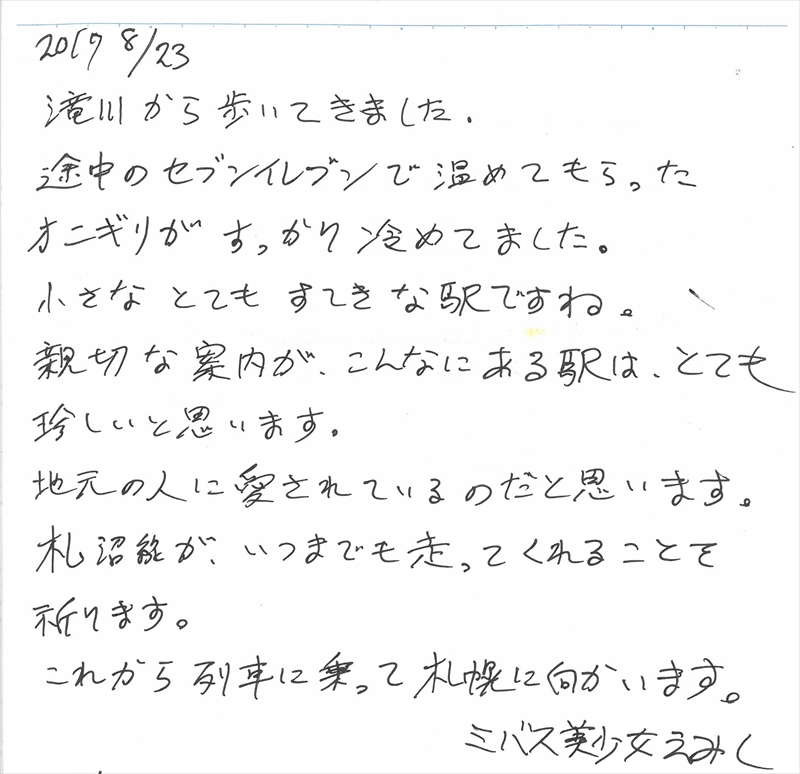 2017 8/23
滝川から歩いてきました.
途中のセブンイレブンで温めてもらった
オニギリがすっかり冷めてました。
小さなとてもすてきな駅ですね。
親切な案内が、こんなにある駅は、とても
珍しいと思います。
地元の人に愛されているのだと思います。
札沼線が、いつまでも走ってくれることを
祈ります。
これから列車に乗って札幌に向かいます。
ミバス美少女えみし